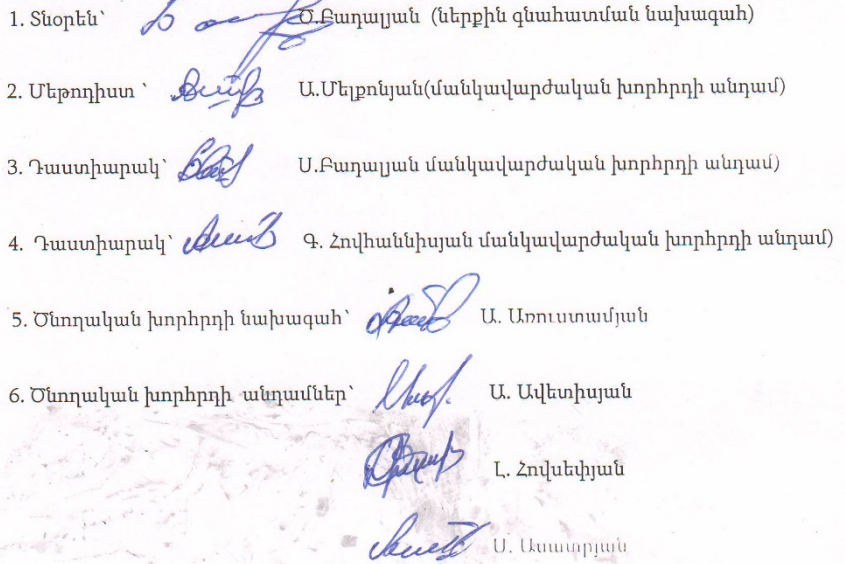 1. Տնօրեն՝ Ծ.Բադալյան (ներքին գնահատման նախագահ)
2. Մեթոդիստ ՝ Ա.Մելքոնյան(մանկավարժական խորհրդի անդամ)
3. Դաստիարակ՝ Ս.Բադալյան մանկավարժական խորհրդի անդամ)
4. Դաստիարակ՝ Գ. Հովհաննիսյան մանկավարժական խորհրդի անդամ)
5. Ծնողական խորհրդի նախագահ՝ Ա. Առուստամյան
6. Ծնողական խորհրդի անդամներ՝ Ա. Ավետիսյան
Լ. Հովսեփյան
Ս. Ասատրյան